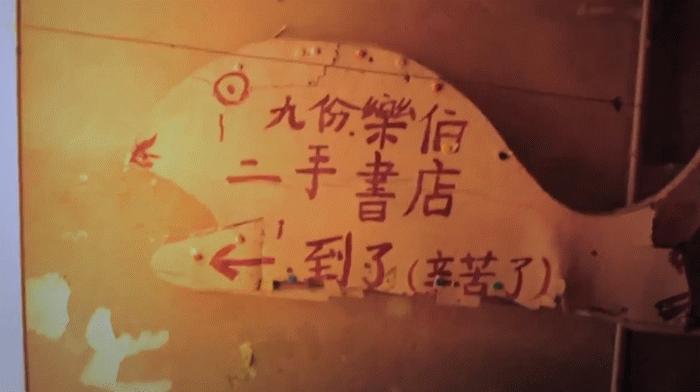 九份樂伯
二手書店
← 到了(辛苦了)